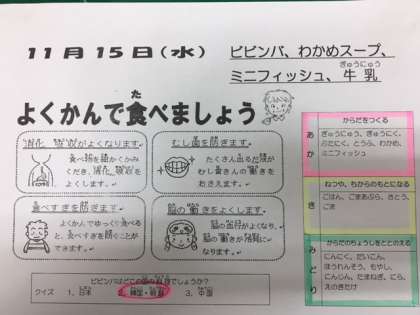 11月15日(水)
ビビンバ、わかめスープ、
ミニフィッシュ、牛乳
ぎゅうにゅう
よくかんで食べましょう
た
消化、吸収がよくなります。
食べ物を細かくかみ
くだき、消化、吸収を
よくします。
むし歯を防ぎます。
たくさん出るだ液が
むし歯きんの働きを
おさえます。
食べすぎを防ぎます。
よくかんでゆっくり食べる
と、食べすぎを防ぐことが
できます。
脳の働きをよくします。
脳の血行がよくなり、
脳の働きが活発に
なります。
ビビンバはどこの国の料理でしょうか?
クイズ 1、日本 2、韓国・朝鮮 3、中国
あか
からだをつくる
ぎゅうにゅう、ぎゅうにく、
ぶたにく、とうふ、わかめ、
ミニフィッシュ
き
ねつや、ちからのもとになる
ごはん、ごまあぶら、さとう、
ごま
みどり
からだのちょうしをととのえる
にんにく、だいこん、
ほうれんそう、もやし、
にんじん、たまねぎ、にら、
えのきたけ